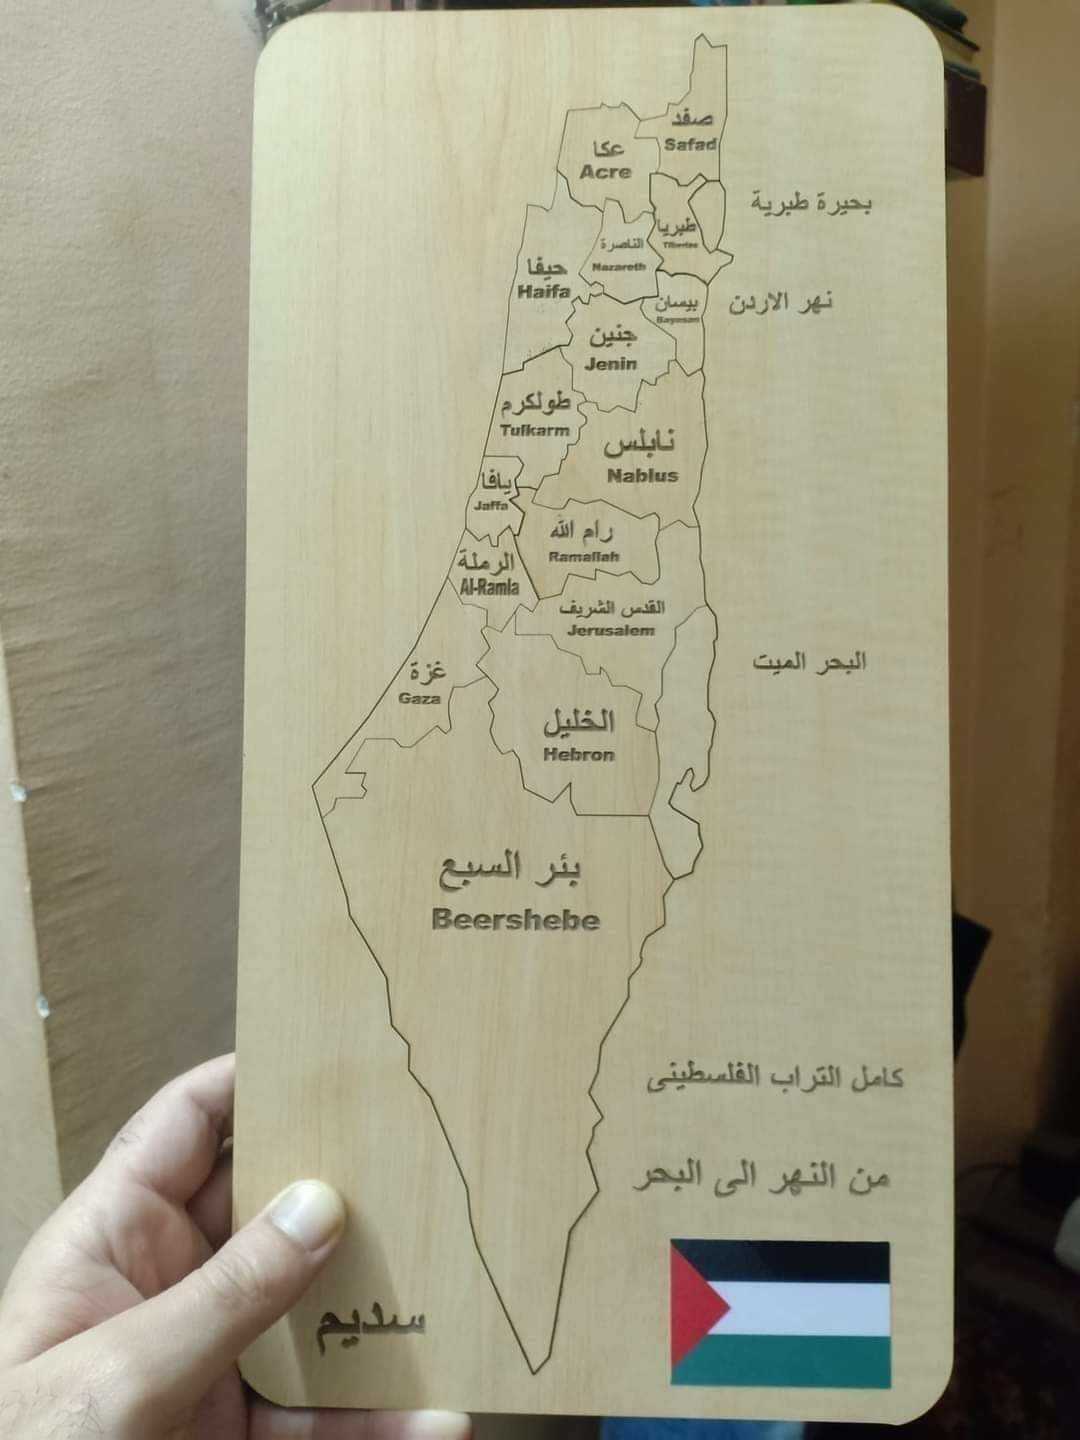 صفد
Safad
عكا
Acre
بحيرة طبرية
طبريا
Tiberias
الناصرة
Nazareth
حيفا
Haifa
بيسان
Bayesan
نهر الاردن
جنين
Jenin
طولكرم
Tulkarm
نابلس
Nablus
يافا
Jaffa
رام الله
Ramallah
الرملة
Al-Ramla
القدس الشريف
Jerusalem
البحر الميت
غزة
Gaza
الخليل
Hebron
بئر السبع
Beershebe
كامل التراب الفلسطينى
من النهر الى البحر
سديم